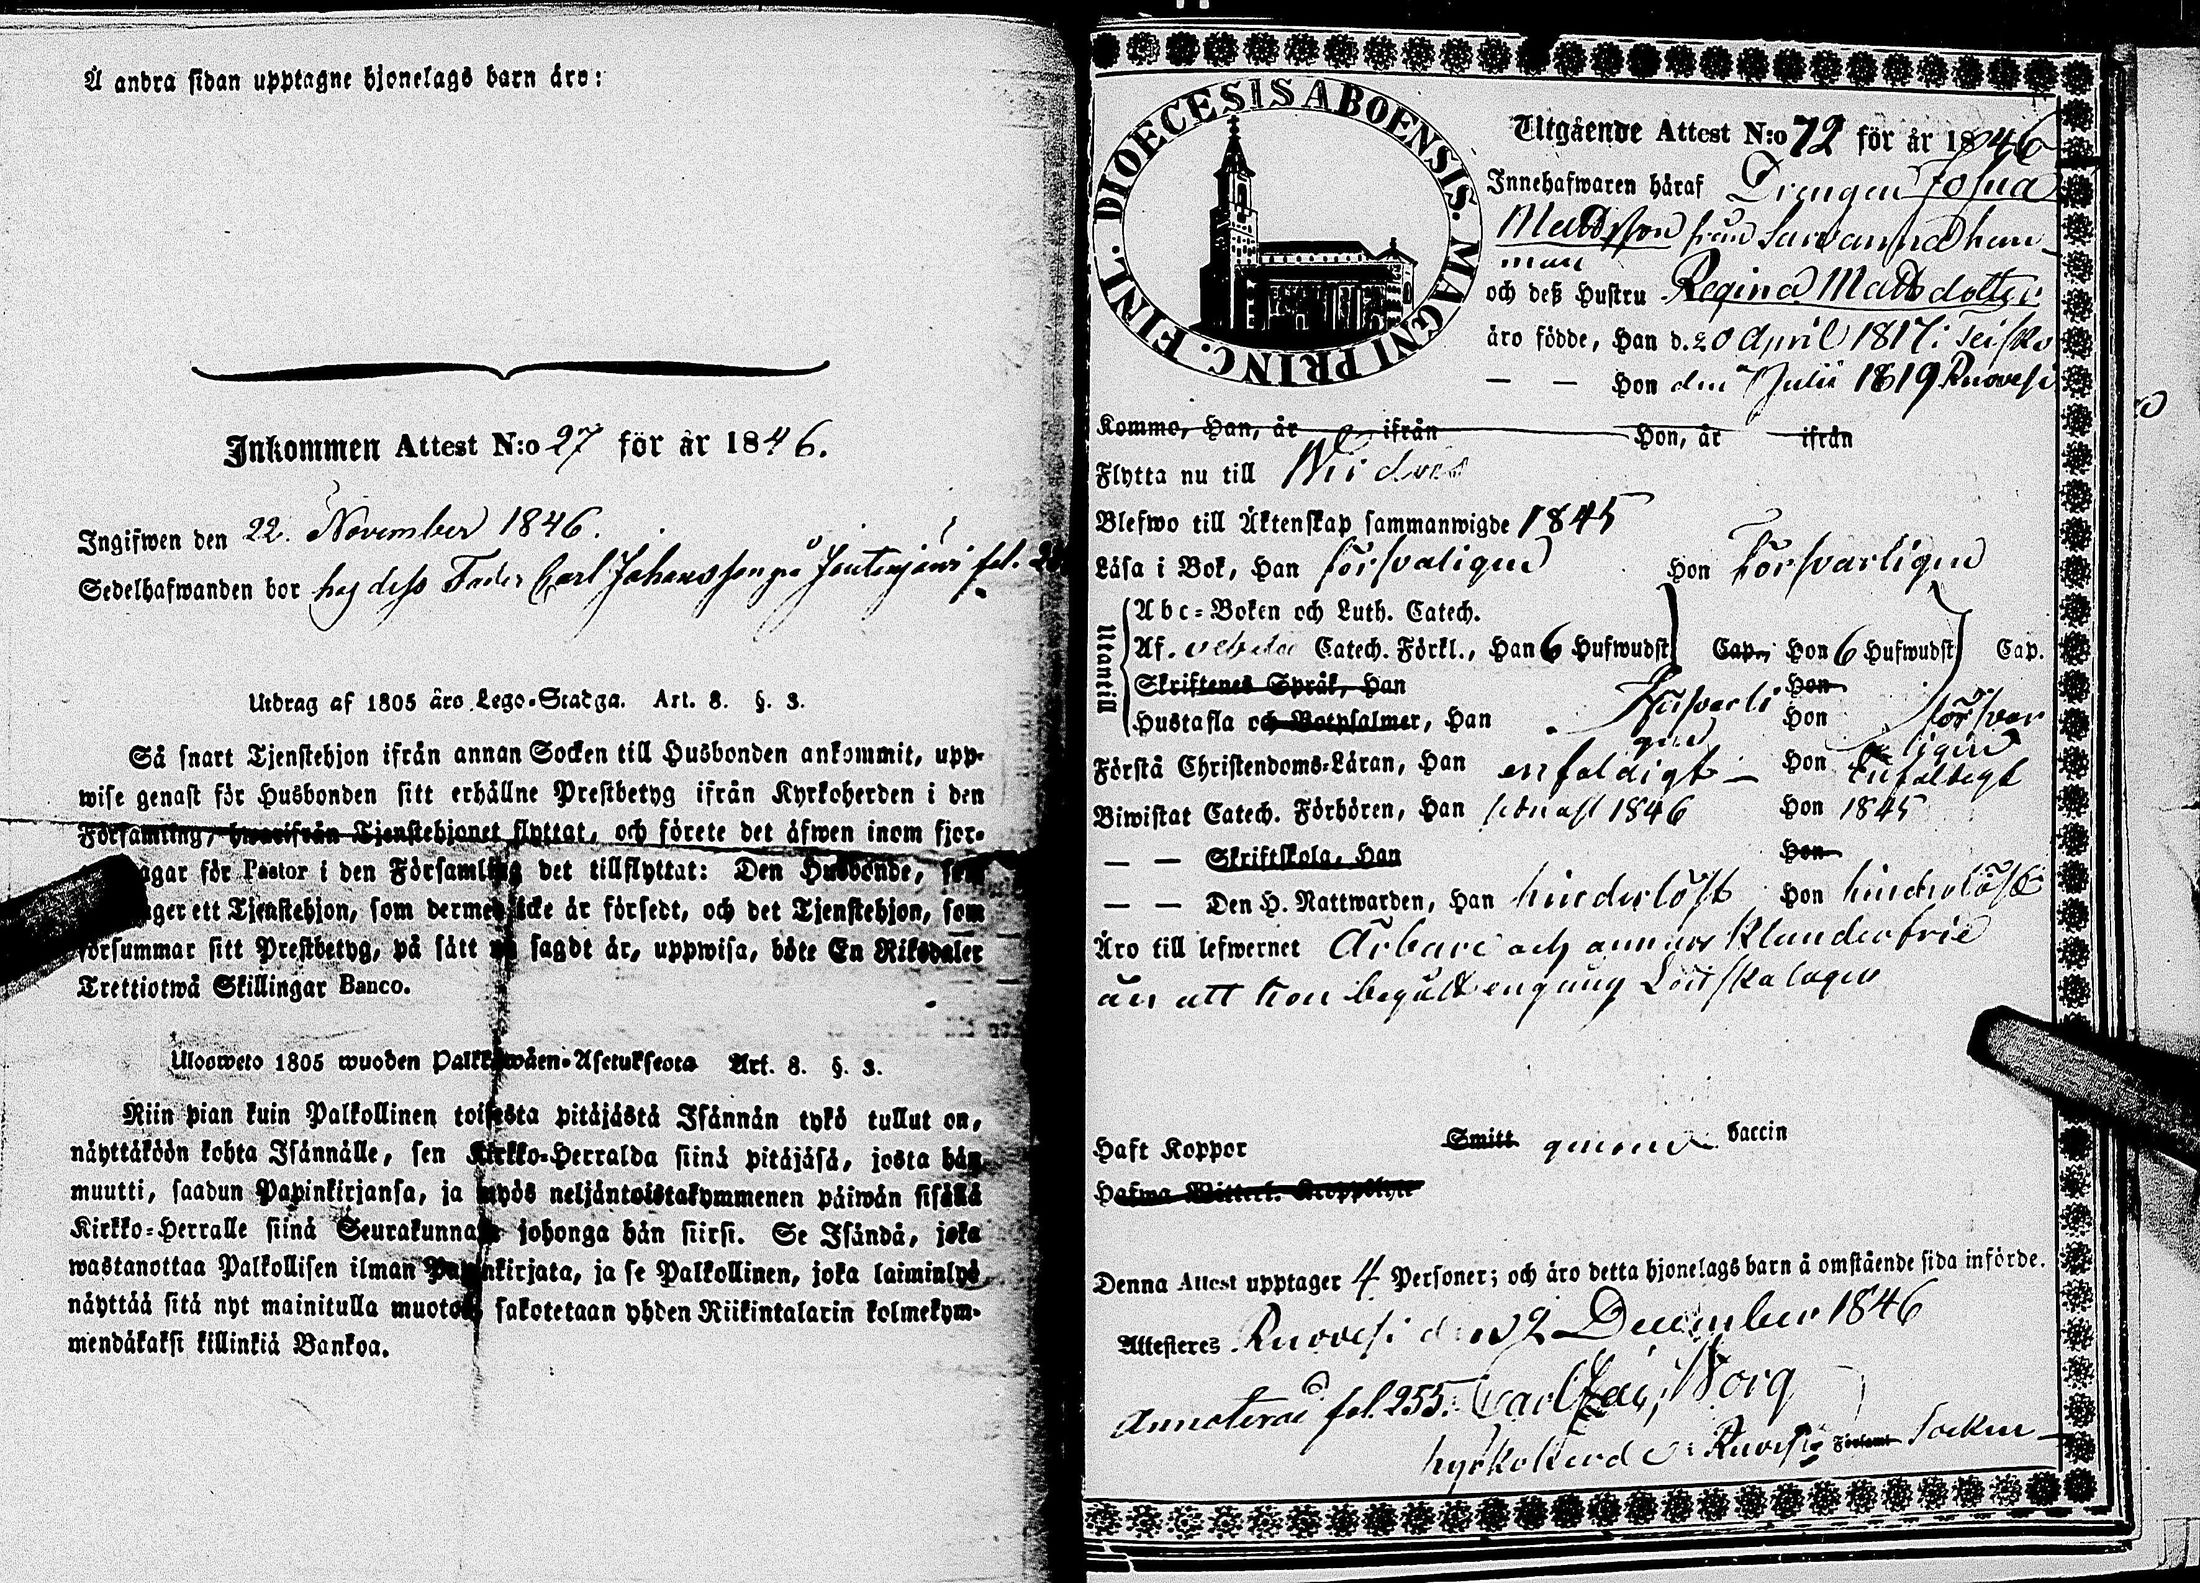 Å andra sidan upptagne hjonelags barn äro:
Inkommen Attest N:o 27 för år 1846.
Ingifwen den 22. November 1846.
Sedelhafwanden bor hos dess Fader Carl Johansson på fol.
Utdrag af 1805 års Lego-Stadga. Art. 8. §. 3.
Så snart Tjenstehjon ifrån annan Socken till Husbonden ankommit, upp-
wise genast för Husbonden sitt erhållne Prestbetyg ifrån Kyrkoherden i den
Församling, hwarifrån Tjenstehjonet flyttat, och förete det äfwen inom fjor-
agar för Pastor i den Församling det tillflyttat: Den Husbonde, som
ager ett Tjenstehjon, som dermed icke är försedt, och det Tjenstehjon, som
försummar sitt Prestbetyg, på sätt nu sagdt är, uppwisa, böte En Riksdaler
Trettiotwå Skillingar Banco.
Ulosweto 1805 wuoden Palkkawäen-Asetuksesta Art. 8. §. 3.
Niin pian kuin Palkollinen toisesta pitäjästä Isännän tykö tullut on,
näyttäköön kohta Isännälle, sen Kirkko-Herralda siinä pitäjäsä, josta hän
muutti, saadun Papinkirjansa, ja myös neljäntoistakymmenen päiwän sisällä
Kirkko-Herralle siinä Seurakunnassa johonga hän siirsi. Se Isändä, joka
wastanottaa Palkollisen ilman Papinkirjata, ja se Palkollinen, joka laiminlyö
näyttää sitä nyt mainitulla muotolla, sakotetaan yhden Riikintalarin kolmekym-
mendäkaksi killinkiä Bankoa.
DIOECESIS ABOENSIS. MAGNI PRINC. FINL.
Utgående Attest N:o 72 för år 1846
Innehafwaren häraf Drengen Josua
Mattsson från Sarvanna hem-
man
och deß Hustru Regina Mattsdotter
äro födde, Han d. 20 April 1817 i Teisko
— — Hon den 7 Julii 1819 Ruovesi
Komme, Han, år ifrån Hon, år ifrån
Flytta nu till
Blefwo till Äktenskap sammanwigde 1845
Läsa i Bok, Han försvarligen Hon Försvarligen
Utantill
Abc-Boken och Luth. Catech.
Af Catech. Förkl., Han 6 Hufwudst. Cap., Hon 6 Hufwudst. Cap.
Skriftenes Språk, Han Hon
Hustafla och Botpsalmer, Han Försvarli Hon försvar
gen ligen
Förstå Christendoms-Läran, Han enfaldigt — Hon Enfaldigt
Biwistat Catech. Förhören, Han sednast 1846 Hon 1845
— — Skriftskola, Han Hon
— — Den H. Nattwarden, Han hinderlöst Hon hinderlöst
Äro till lefwernet Ärbare och annars klanderfrie
än att hon begått en gång Löns kalägen
Haft Koppor Smitt genom vaccin
Hafwa Witterl. Kroppslyte
Denna Attest upptager 4 Personer; och äro detta hjonelags barn å omstående sida införde.
Attesteres Ruovesi den 2 December 1846
Annoterad fol. 255. Carl
Kyrkoherde i Ruovesi Förfamt Socken